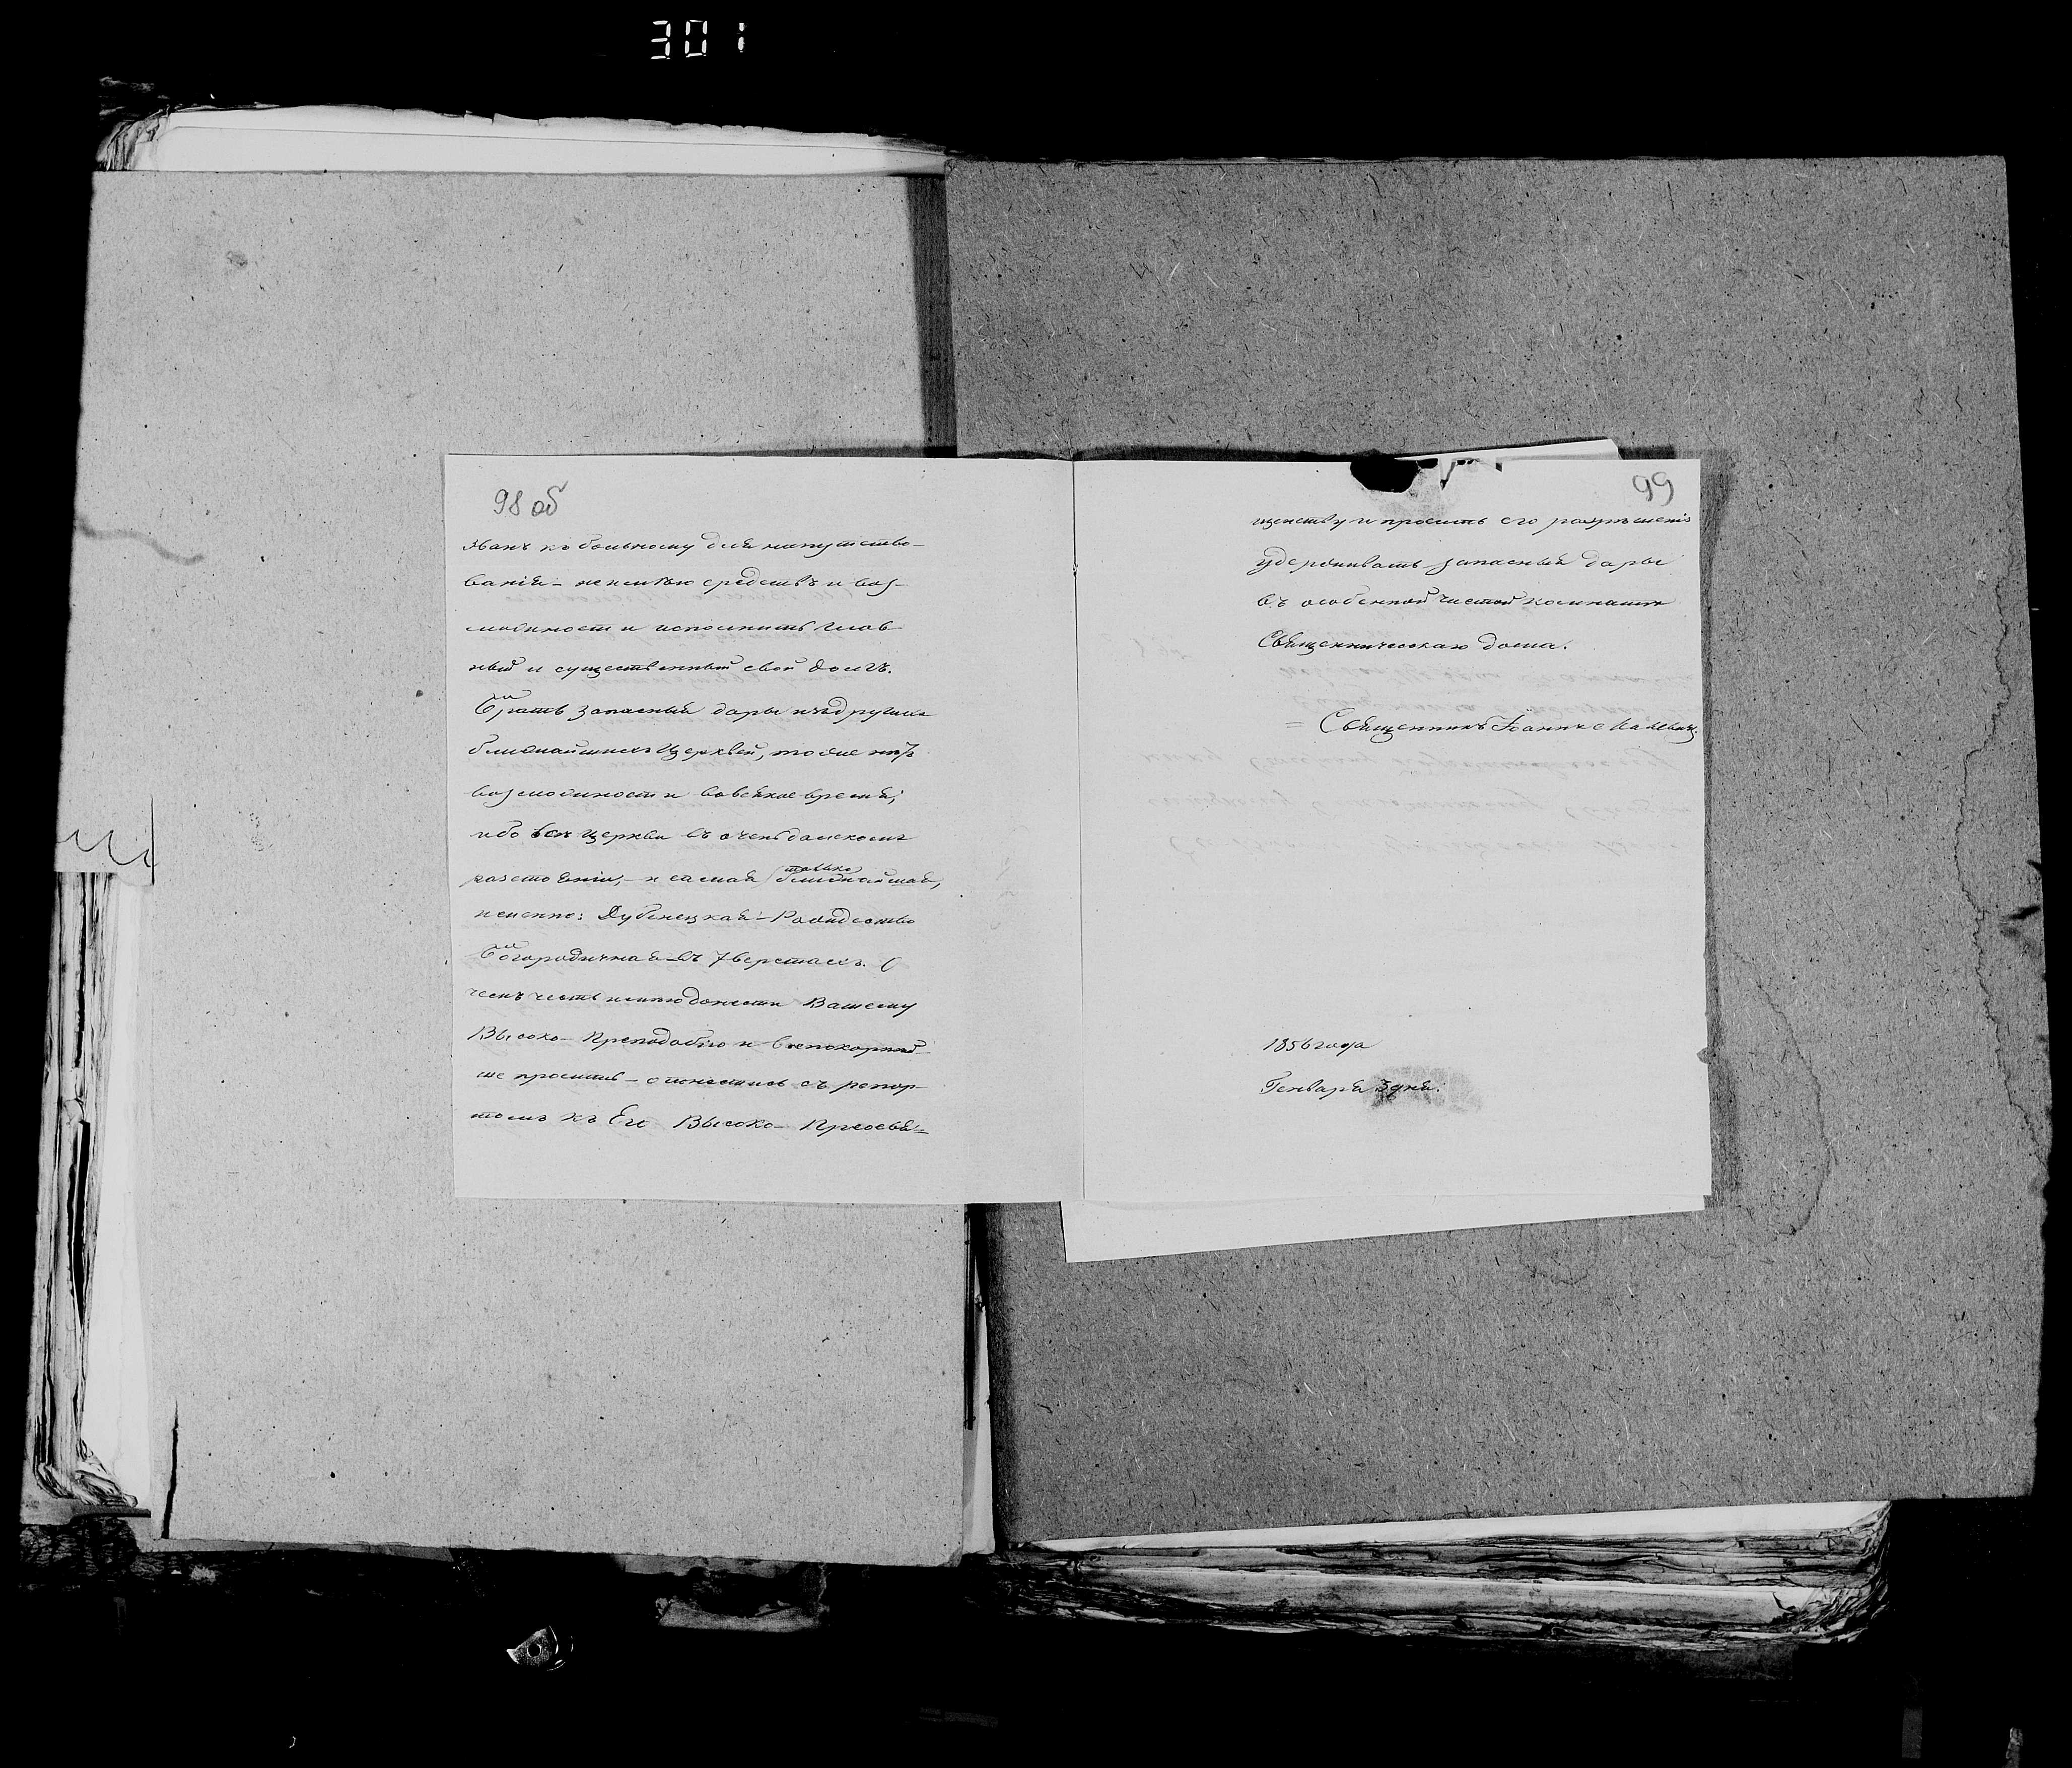 301
98 об
званъ къ больному для напутство-
ванія – не имѣю средствъ и воз-
можности исполнить глав-
ный и существенный свой долгъ.
Брать запасныя дары изъ другихъ
ближайшихъ церквей, тоже нѣтъ
возможности во всякое время;
ибо всѣ церкви въ очень далекомъ
разстояніи, – и самая только ближайшая,
именно: Дубенецкая – Рождество
Богородичная – въ 7 верстахъ. О
чемъ честь имѣю донести Вашему
Высоко-Преподобію и всепокорнѣй-
ше просить – отнестись съ рапор-
томъ къ Его Высоко-Преосвя-
99
щенству и просить его разрѣшенія
удерживать запасныя дары
въ особенной чистой комнатѣ
Священническаго дома.
Священникъ Іоаннъ
1856 года
Генваря 3 дня.